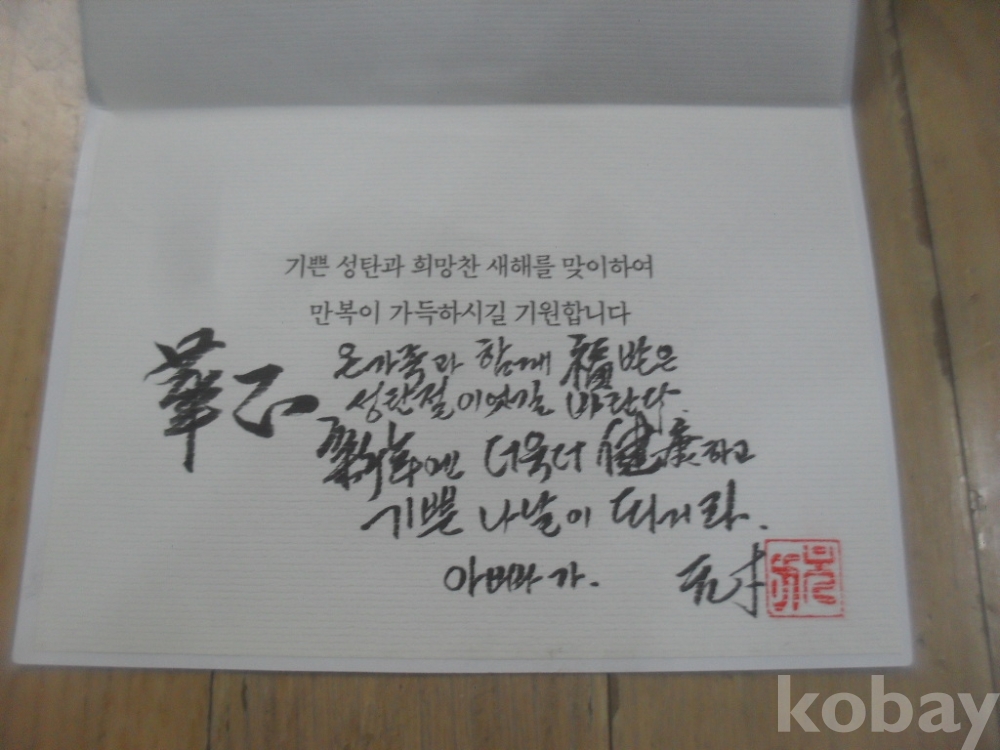 기쁜 성탄과 희망찬 새해를 맞이하여
만복이 가득하시길 기원합니다
온가족과 함께 福받은
성탄절이엿길 바란다.
新年엔 더욱더 健康하고
기쁜 나날이 되거라.
kobay